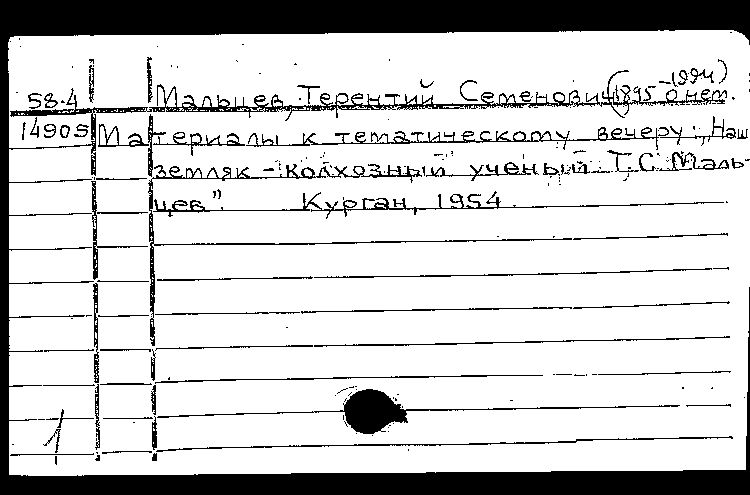 58.4 Мальцев, Терентий Семенович (1895-1994) о нем.
14909 Материалы к тематическому вечеру: „Наш
земляк - колхозный ученый Т.С. Маль-
цев". Курган, 1954.
1